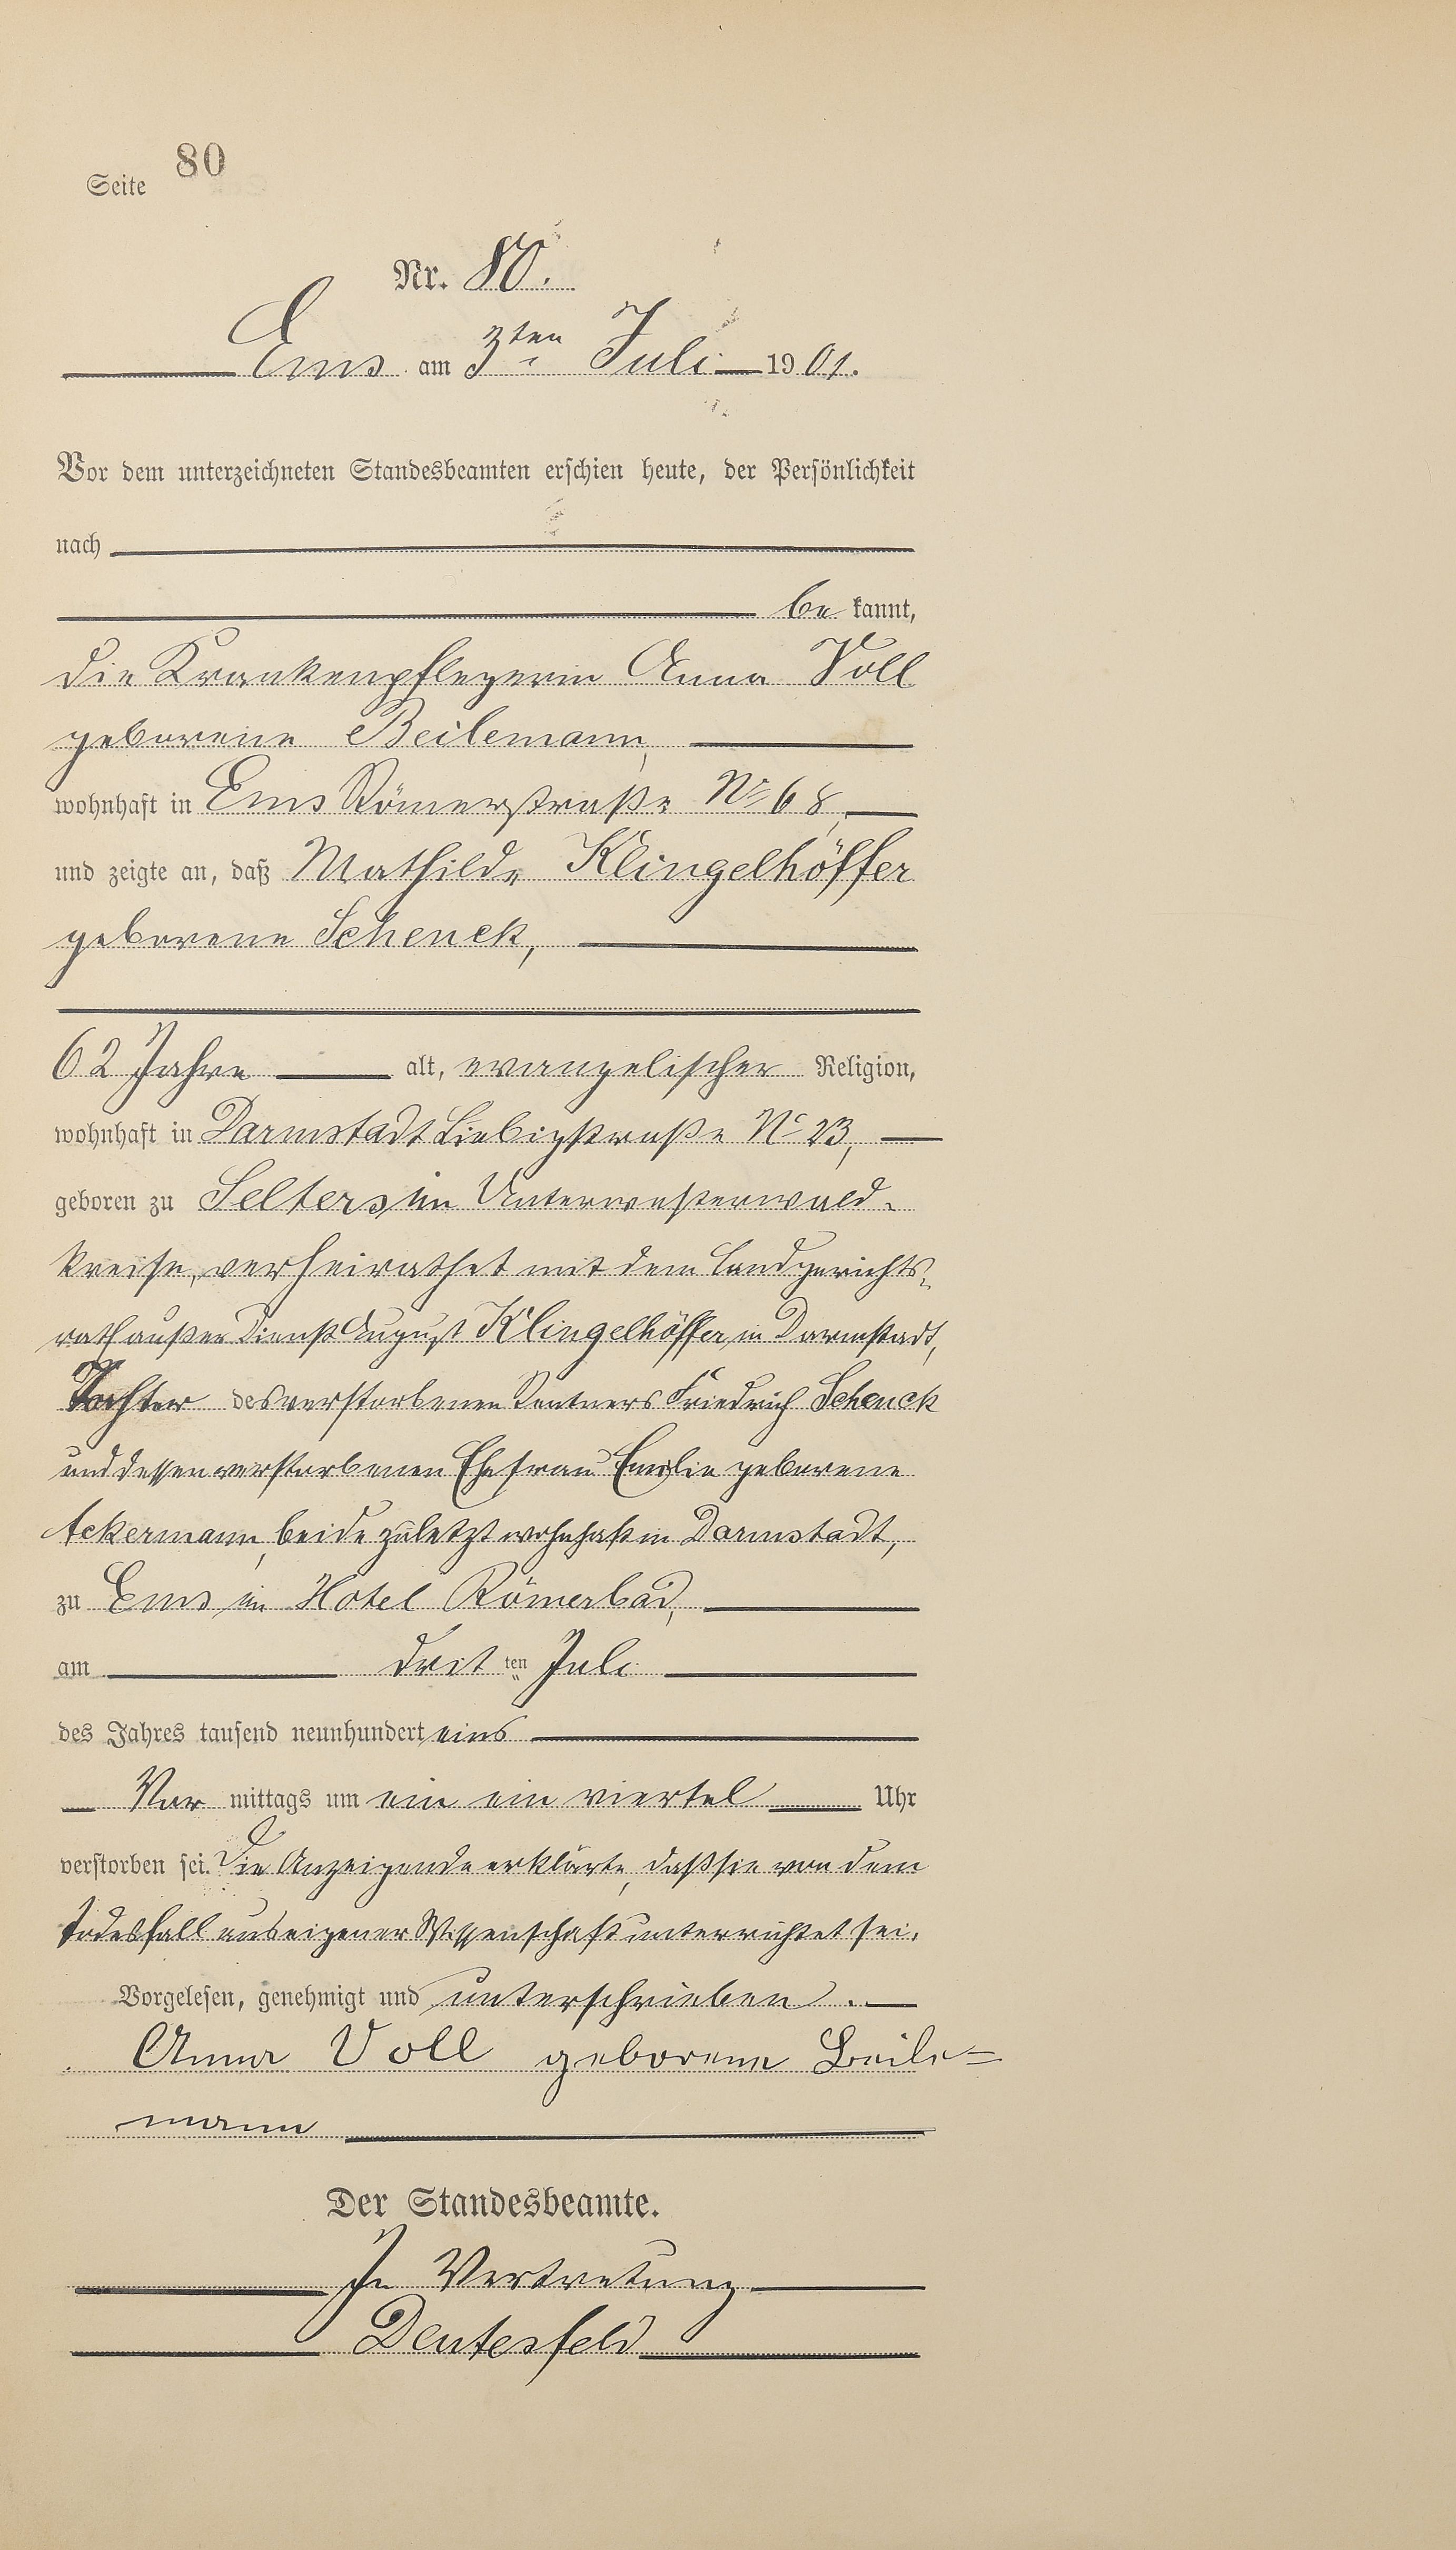 Seite 80
Nr. 80.
Ems am 3ten Juli 1901.
Vor dem unterzeichneten Standesbeamten erschien heute, der Persönlichkeit
nach
bekannt,
die Krankenpflegerin Anna Voll
geborene Beilemann,
wohnhaft in Ems Römerstraße No 68,
und zeigte an, daß Mathilde Klingelhöffer
geborene Schenck,
62 Jahre alt, evangelischer Religion,
wohnhaft in Darmstadt Liebigstraße No 23,
geboren zu Selters im Unterwesterwald-
kreise, verheirathet mit dem Landgerichts-
rath außer Dienst August Klingelhöffer in Darmstadt,
Tochter des verstorbenen Rentners Friedrich Schenck
und dessen verstorbenen Ehefrau Emilie geborene
Ackermann, beide zuletzt wohnhaft in Darmstadt,
zu Ems im Hotel Römerbad,
am dritten Juli
des Jahres tausend neunhundert eins
Vormittags um ein ein viertel Uhr
verstorben sei. Die Anzeigende erklärte, daß sie von dem
Todesfall aus eigener Wissenschaft unterrichtet sei.
Vorgelesen, genehmigt und unterschrieben.
Anna Voll geborene Beile=
mann
Der Standesbeamte.
In Vertretung
Deutesfeld